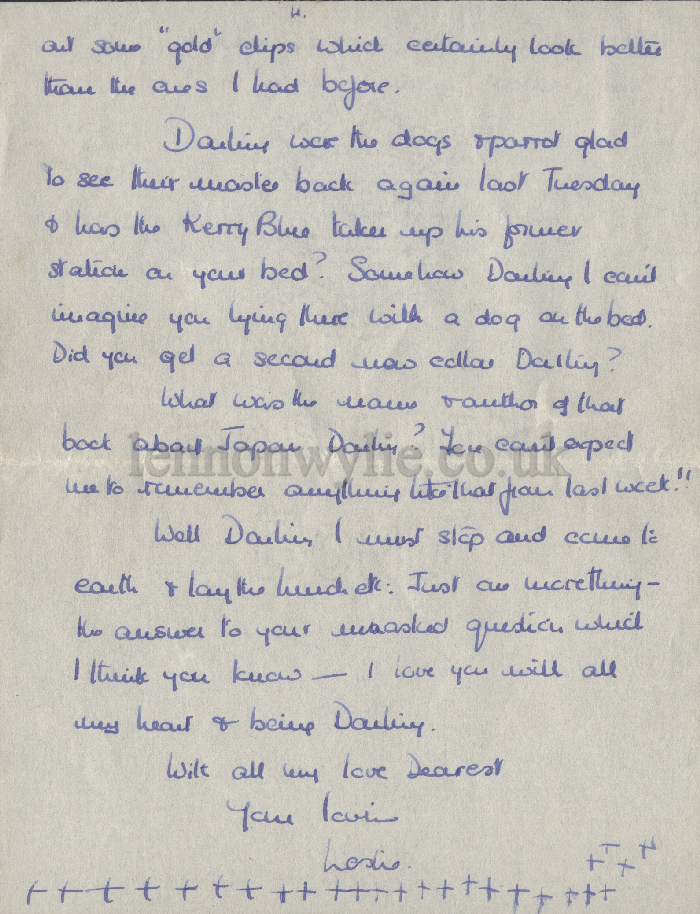 4.
out some "gold" clips which certainly look better
than the ones I had before.
Darling were the dogs & parrot glad
to see their master back again last Tuesday
& has the Kerry Blue taken up his former
station on your bed? Somehow Darling I can't
imagine you lying there with a dog on the bed.
Did you get a second new collar Darling?
What was the name & author of that
book about Japan Darling? You can't expect
me to remember anything like that from last week!!
Well Darling I must stop and come to
earth & lay the lunch etc. Just one more thing -
the answer to your unasked question which
I think you know — I love you with all
my heart & being Darling.
With all my love Dearest
Your loving
Leslie.
+ + + +
+ + + + + + + + + + + + + + + + + + + + + + +
lennonwylie.co.uk